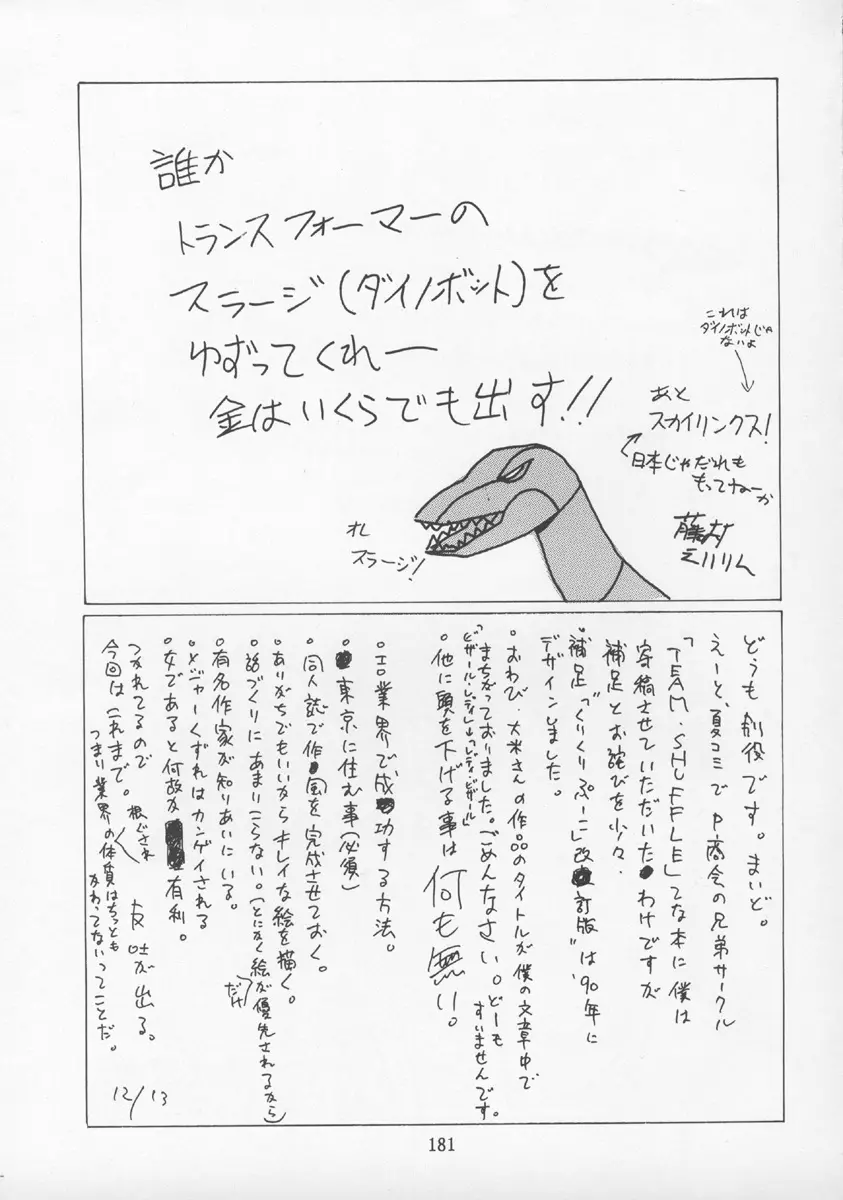 誰か
トランスフォーマーの
スラージ(ダイノボット)を
ゆずってくれー
金はいくらでも出す!!
これは
ダイノボットじゃ
ないよ
あと
スカイリンクス!
日本じゃだれも
もってねーか
藤村
えいりん
オレ
スラージ!
どうも、削役です。まいど。
えーと、夏コミでP商会の兄弟サークル
「TEAM・SHUFFLE」てな本に僕は
寄稿させていただいたわけですが
補足とお詫びを少々・
•補足 "くりくりぷーこ改訂版"は'90年に
デザインしました。
•おわび・大米さんの作品のタイトルが僕の文章中で
まちがっておりました。ごめんなさい。どーも
すいませんです。
「ビザール・レディ」→「レディ・ビザール」
•他に頭を下げる事は何も無い。
•エロ業界で、成功する方法。
•東京に住む事(必須)
•同人誌で作風を完成させておく。
•ありがちでもいいからキレイな絵を描く。
•話づくりにあまりこらない。(とにかく絵だけが優先されるから)
•有名作家が知りあいにいる。
•メジャーくずれはカンゲイされる
•女であると何故か有利。
つかれてるので
今回はこれまで。
根ぐされ
反吐が出る。
つまり業界の体質はちっとも
かわってないってことだ。
12/13
181